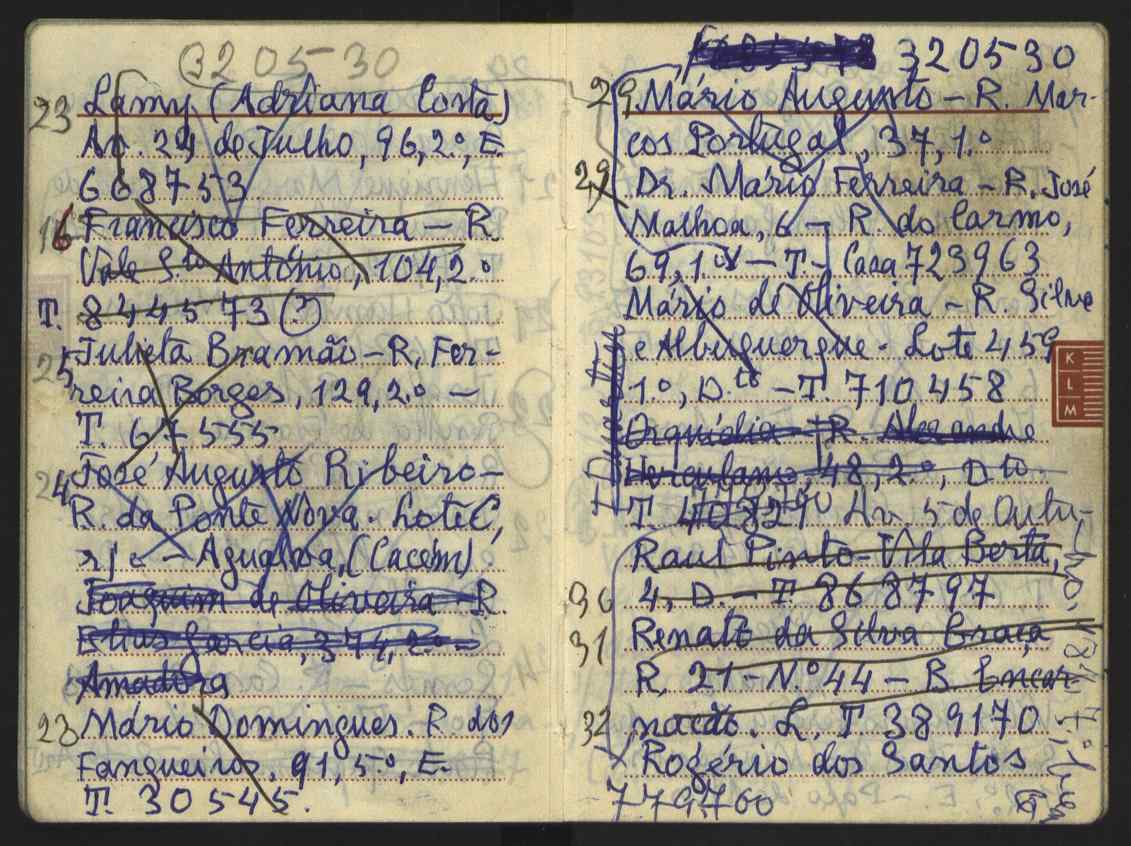 320530
23 Lamy (Adriana Costa)
Av. 24 de Julho, 96, 2.º, E.
668753
16 Francisco Ferreira – R.
Vale S.to António, 104, 2.º
T. 8445573 (?)
25 Julieta Bramão – R. Fer-
reira Borges, 129, 2.º –
T. 67555
24 José Augusto Ribeiro –
R. da Ponte Nova. Lote C,
r/c – Agualva, (Cacém)
Joaquim de Oliveira – R.
Elias Garcia, 374, 2.º –
Amadora
23 Mário Domingues. R. dos
Fanqueiros, 91, 5.º, E.
T. 30545.
320530
29 Mário Augusto – R. Mar-
cos Portugal, 37, 1.º
29 Dr. Mário Ferreira – R. José
Malhoa, 6 – R. do Carmo,
69, 1.º – T. – Casa 723963
Mário de Oliveira – R. Silva
e Albuquerque. Lote 459
1.º, D.to – T. 710458
Orquídia – R. Alexandre
Herculano, 48, 2.º, D.to
T. Av. 5 de Outu-
bro,
Raul Pinto – Vila Berta,
30 4, D. – T. 868797
31 Renato da Silva Graça
R. 21 – N.º 44 – R. Encar-
32 nação. L. T. 389170
Rogério dos Santos
779760
KLM